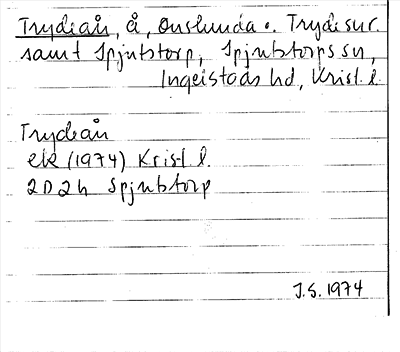 Trydeån, å, Onslunda o. Tryde snr.
samt Spjutstorp, Spjutstorps sn,
Ingelstads hd, Krist. l.
Trydeån
ek (1974) Krist l.
2D2h Spjutstorp
J.S. 1974